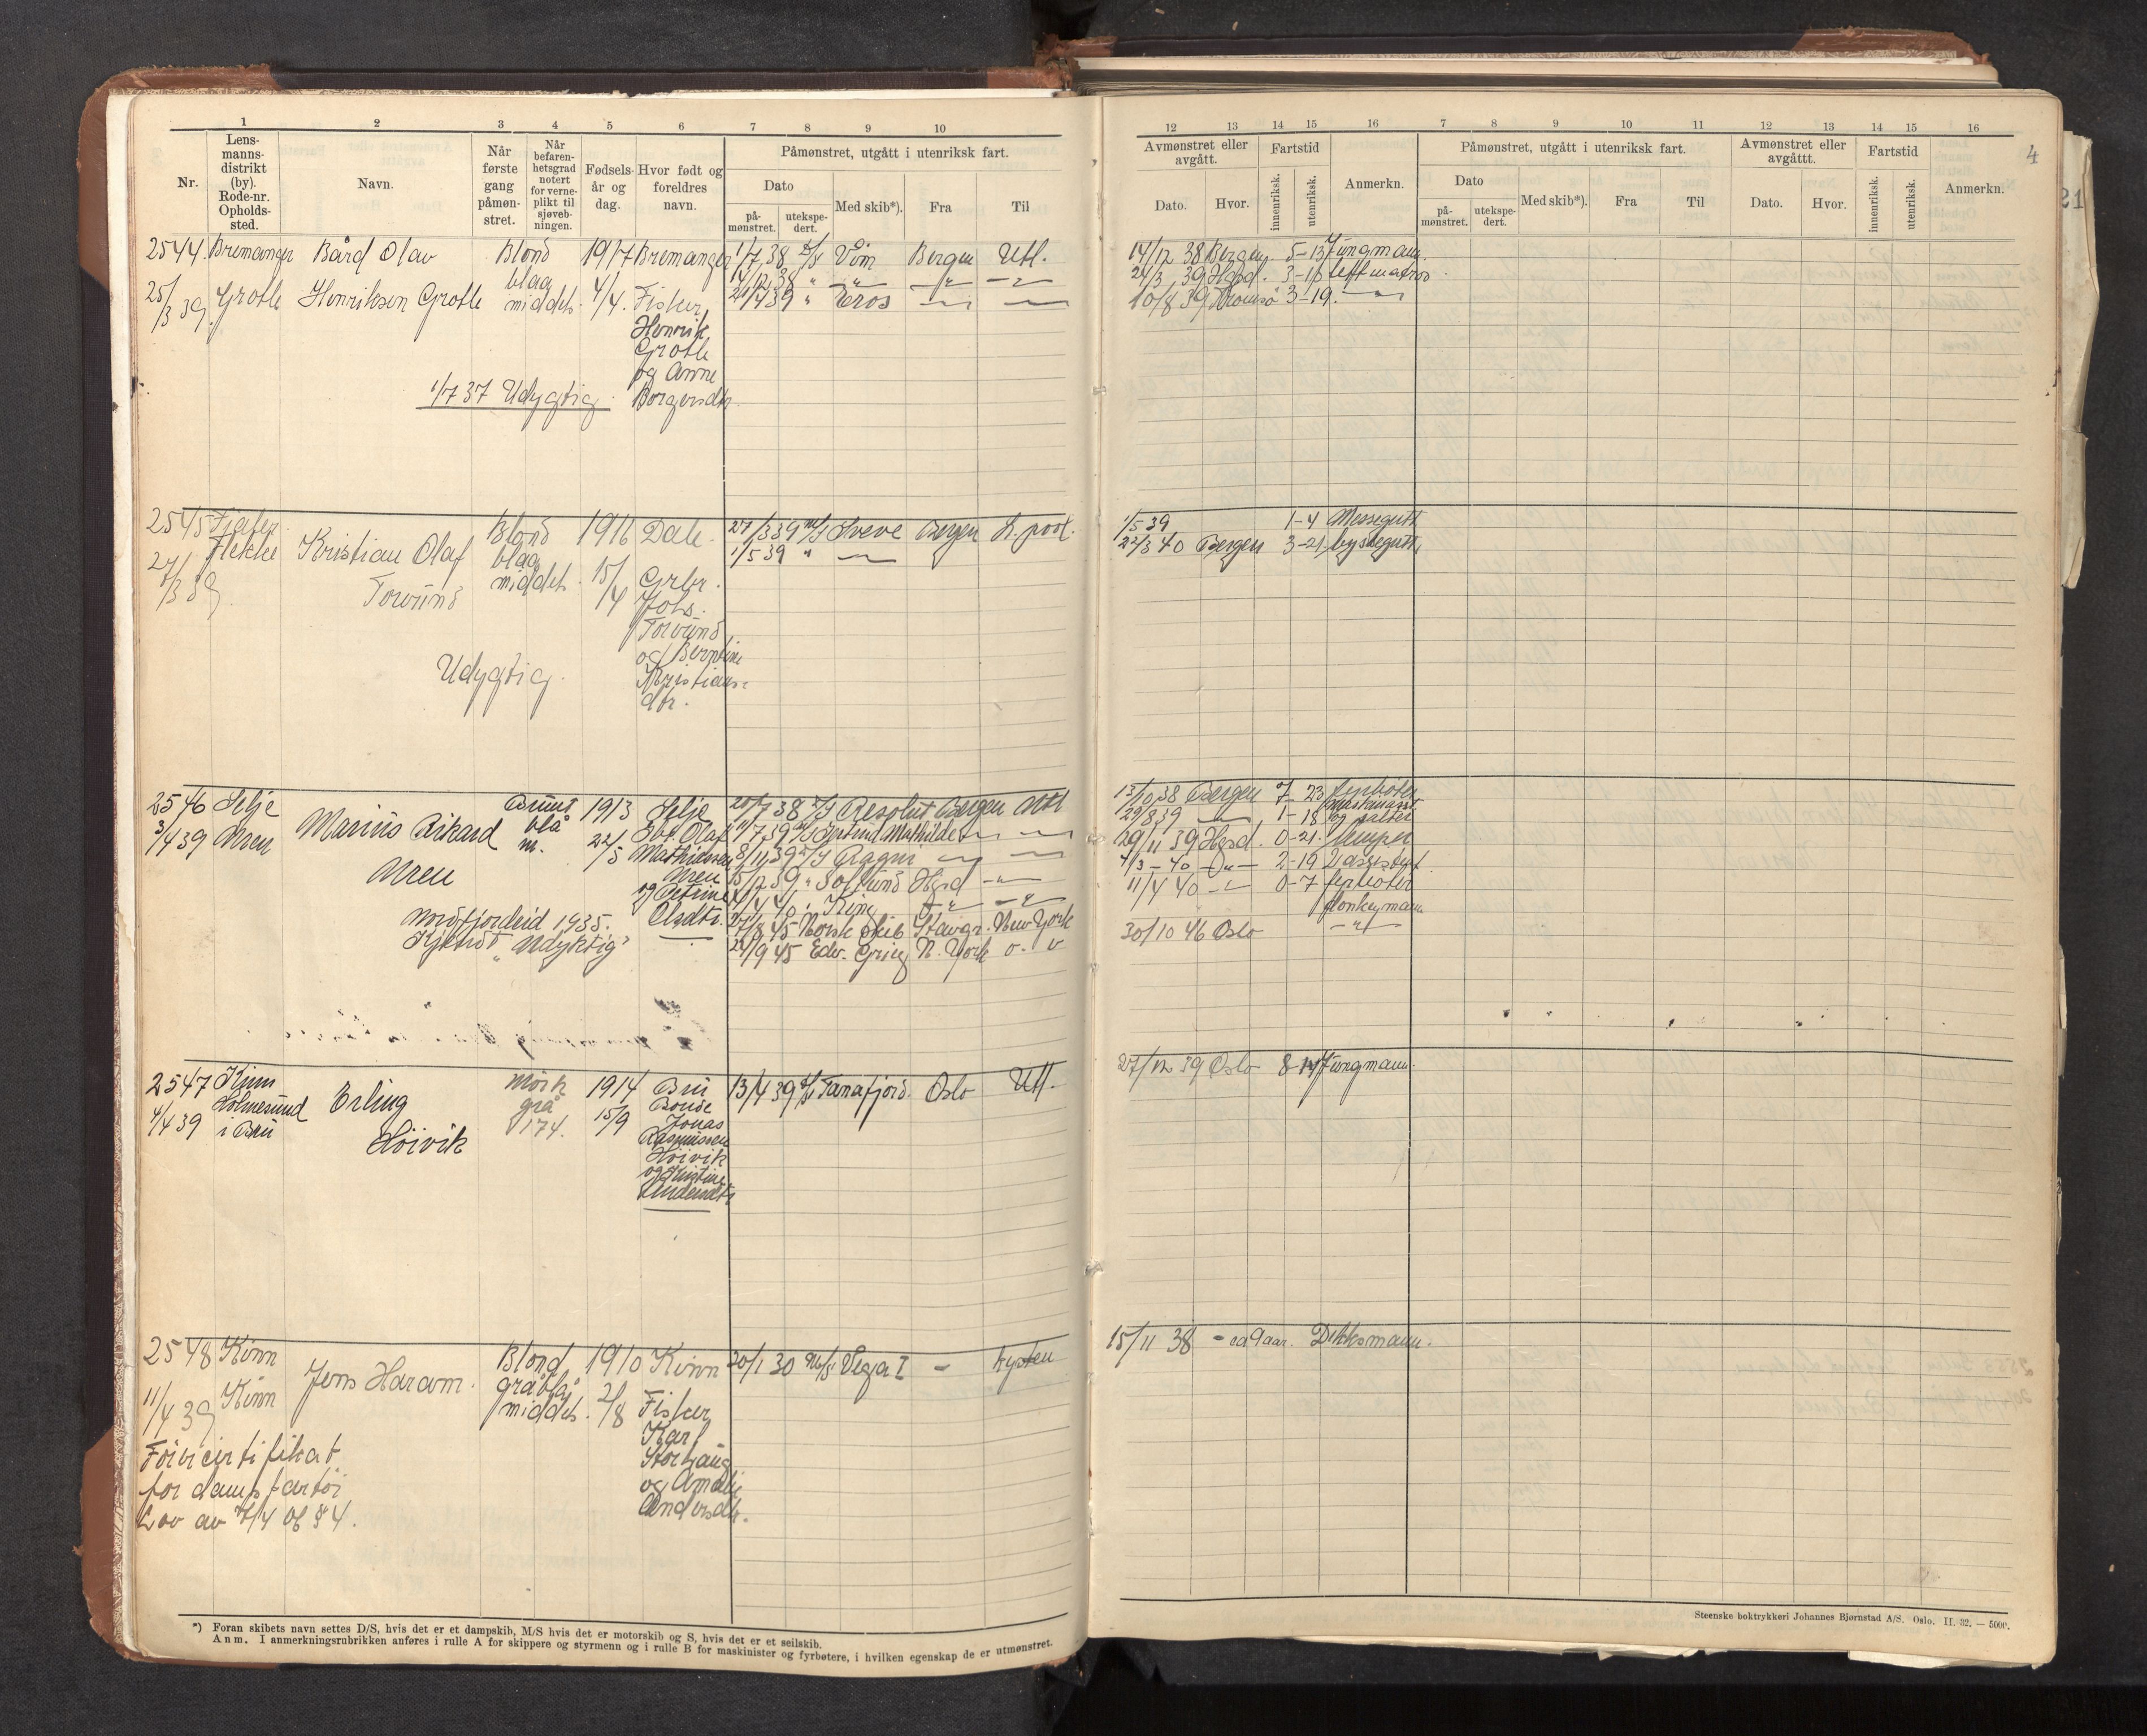 1 2 3 4 5 6 7 8 9 10
Nr.
Lens-
manns-
distrikt
(by).
Rode-nr.
Opholds-
sted.
Navn.
Når
første
gang
påmøn-
stret.
Når
befaren-
hetsgrad
notert
for verne-
plikt til
sjøveb-
ningen.
Fødsels-
år og
dag.
Hvor født og
foreldres
navn.
Påmønstret, utgått i utenriksk fart.
Dato
på-
mønstret.
utekspe-
dert.
Med skib*).
Fra
Til
2544. Bremanger Bård Olav Blond 1917 Bremanger 1/7 38 Bergen Utl.
blaa 14/12 38 " — " — — " — — " —
25/3 39. Grotle Henriksen Grotle middels. 4/4. Fisker, 21/4 39 " Eros — " — — " —
Henrik
Grotle
og Anne
1/7 37 Udygtig. Borgersdtr.
2545 Fjaler Blond 1916 Dale. 27/3 39 M/S Bergen L.pool.
Flekke Kristian Olaf blaa 1/5 39 " — " —
27/3 39. middels. 15/4 Grbr.
Johs.
og
Kristians-
dtr.
Udygtig.
2546 Selje 1913 Selje 38 D/S Resolut Bergen Utl
3/4 39 Marius Rikard blå 22/5 Olaf 39 Mathilde — " — — " —
m. Mathiassen 8/11 39 Ragnr — " — — " —
15/12 39 " Hgsd — " —
og Petrine
Nordfjordeid 1935. Olsdtr. 45 Norsk skib Stavgr. New York
Kjendt "Udyktig" 24/9 45 Edv. Grieg N. York o. v
2547 Kinn Mørk 1914 Bru 13/4 39 Tanafjord Oslo Utl.
Holmesund Erling grå Bonde
4/4 39 i Bru 174. 15/9 Jonas
Høivik Rasmussen
Høivik
og Kristine
Andersdtr
2548 Kinn Blond 1910 Kinn 20/1 30 M/S Vega I - kysten
Jens Haram. gråblå
11/4 39 Kinn middels. 2/8 Fisker
Karl
Storhaug
og Amalie
Andersdtr.
for dampfartøi
Lov av 7/4 06 § 4.
*) Foran skibets navn settes D/S, hvis det er et dampskib, M/S hvis det er motorskib og S, hvis det er et seilskib.
Anm. I anmerkningsrubrikken anføres i rulle A for skippere og styrmenn og i rulle B for maskinister og fyrbøtere, i hvilken egenskap de er utmønstret.
12 13 14 15 16 7 8 9 10 11 12 13 14 15 16
Avmønstret eller
avgått.
Fartstid
Dato.
Hvor.
innenriksk.
utenriksk.
Anmerkn.
Påmønstret, utgått i utenriksk fart.
Dato
på-
mønstret.
utekspe-
dert.
Med skib*).
Fra
Til
Avmønstret eller
avgåttt.
Fartstid
Dato.
Hvor.
innenriksk.
utenriksk.
Anmerkn.
4
21
14/12 38 Bergen 5-13 Jungmann.
39 Hgsd. lettmatros
10/8 39 Tromsø 3-19. — " —
1/5 39 1-4 Messegutt
22/3 40 Bergen 3-21 byssegutt
13/10 38 Bergen 7-23 fyrbøter
29/8 39 — " — 1-18 og salter
29/11 39 Hgsd. 0-21. lemper
4/3-40 — " — 2-19
11/4 40 — " — 0-7 fyrbøter
donkeymann
30/10 46 Oslo — " —
27/12 39 Oslo 8-14 Jungmann.
15/11 38 - ca 9 aar. Dekksmann.
Steenske boktrykkeri Johannes Bjørnstad A/S. Oslo. II. 32. — 5000.